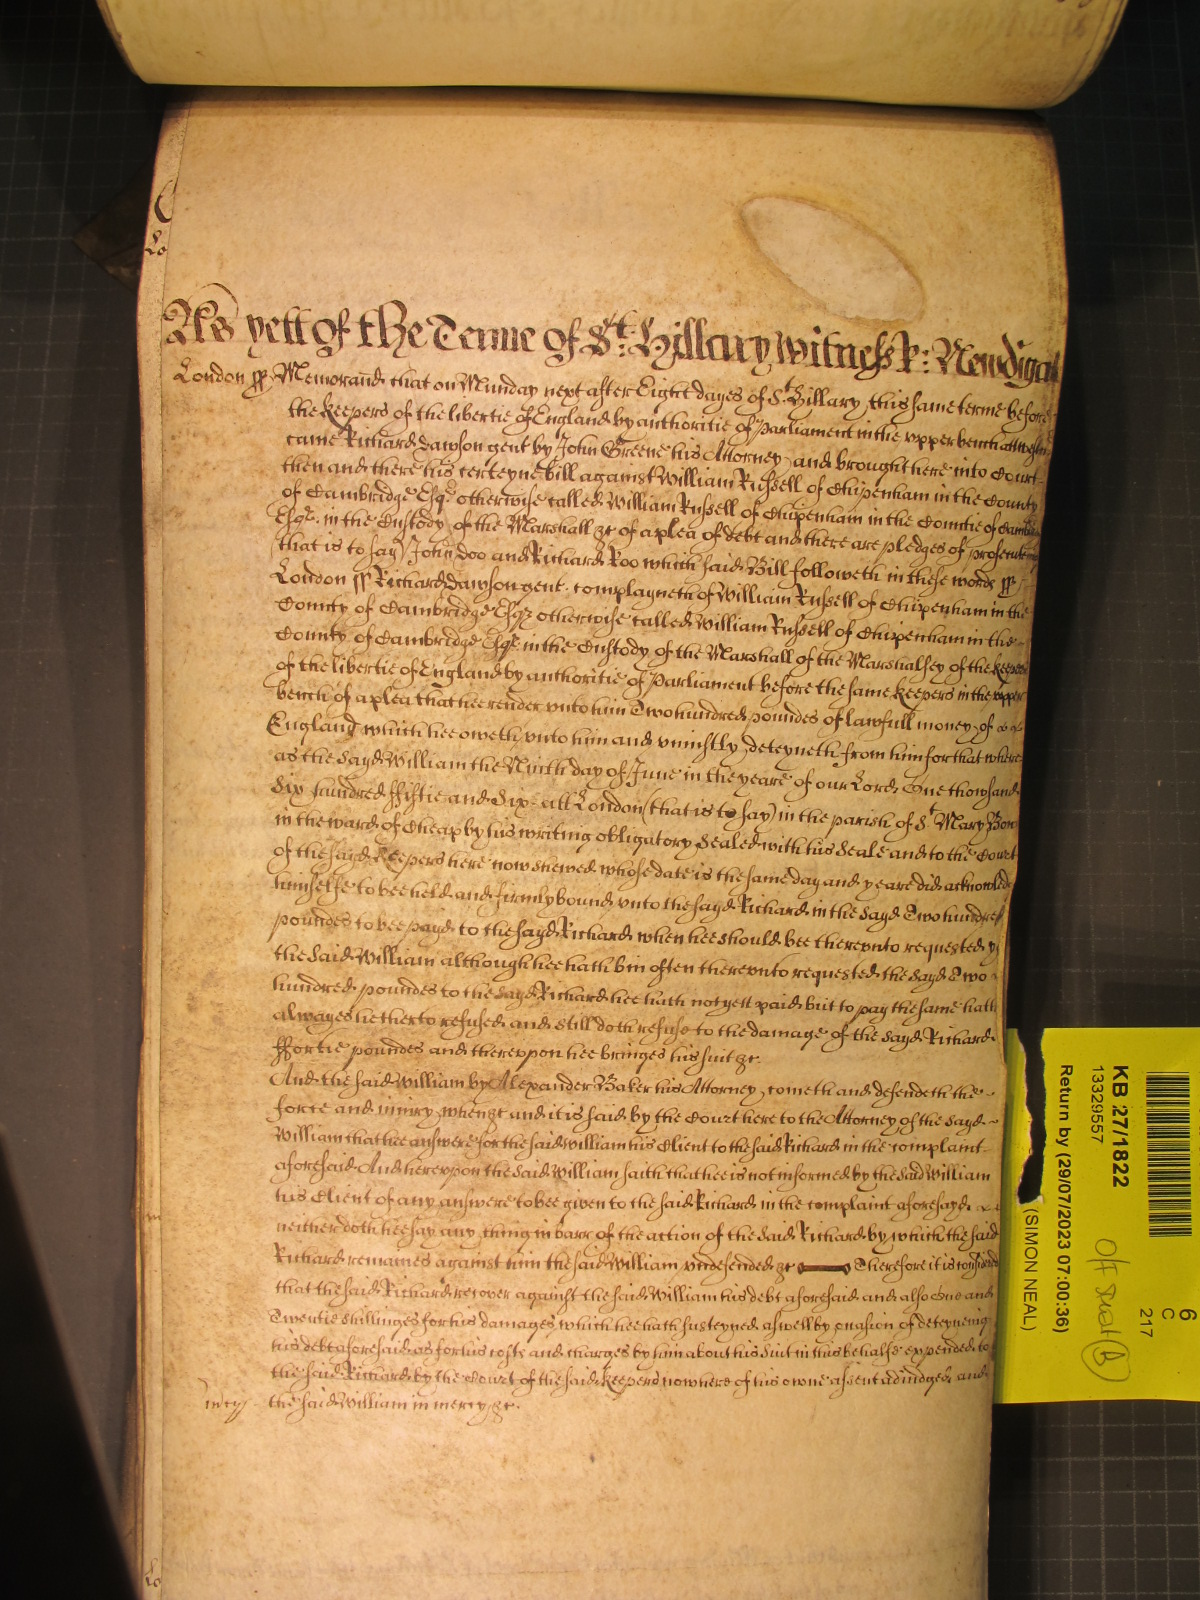 As yett of the Terme of St: Hillary witness R: Newdigat
London ss Memorand that on Munday next after Eight dayes of St Hillary this same terme before
the keepers of the libertie of England by authoritie of Parliament in the upper bench att westm
came Richard dawson gent by John Greene his Attorney and brought here into Court
then and there his certeyne bill against William Russell of Chipenham in the County
of Cambridge Esqr otherwise called William Russell of Chipenham in the Countie of Cambr
Esqr. in the Custody of the Marshall &c of a plea of debt and there are pledges of prosecut
(that is to say) John doo and Richard Roo which said Bill followeth in these words ss
London ss Richard Dawson gent. complayneth of William Russell of Chipenham in the
County of Cambridge Esqr otherwise called William Russell of Chipenham in the
County of Cambridge Esqr. in the Custody of the Marshall of the Marshalsey of the keepers
of the libertie of England by authoritie of Parliament before the same keepers in the upper
bench of a plea that hee render unto him Two hundred poundes of lawfull money of
England which hee oweth unto him and uniustly deteyneth from him for that where
as the sayd William the Ninth day of June in the yeare of our Lord One thowsand
Six hundred ffiftie and Six att London (that is to say) in the parish of St Mary Bow
in the ward of Cheap by his writing obligatory Sealed with his Seale and to the Court
of the sayd keepers here now shewed whose date is the same day and yeare did acknowledg
himselfe to bee held and firmly bound unto the sayd Richard in the sayd Two hundred
poundes to bee payd to the sayd Richard when hee should bee thereunto requested y
the said William although hee hath bin often thereunto requested the sayd Two
hundred poundes to the sayd Richard hee hath not yett paid but to pay the same hath
alwayes hetherto refused and still doth refuse to the damage of the sayd Richard
ffortie poundes and thereupon hee bringes his suit &c.
And the said William by Alexander Baker his Attorney cometh and defendeth the
force and iniury when &c and it is said by the Court here to the Attorney of the sayd
William that hee answere for the said william his Client to the said Richard in the complaint
aforesaid And hereupon the said William saith that hee is not informed by the said William
his Client of any answere to bee given to the said Richard in the complaint aforesayd
neither doth hee say any thing in barr of the action of the said Richard by which the said
Richard remaines against him the said William undefended &c Therefore it is considered
that the said Richard recover against the said William his debt aforesaid and also One and
Twentie shillinges for his damages which hee hath susteyned aswell by occasion of deteyning
his debt aforesaid as for his costs and charges by him about his Suit in this behalfe expended to
the said Richard by the Court of the said keepers now here of his owne assent adiudged and
the said William in mercy &c.
KB 27/1822
13329557
Return by (29/07/2023 07:00:36)
(SIMON NEAL)
6
C
217